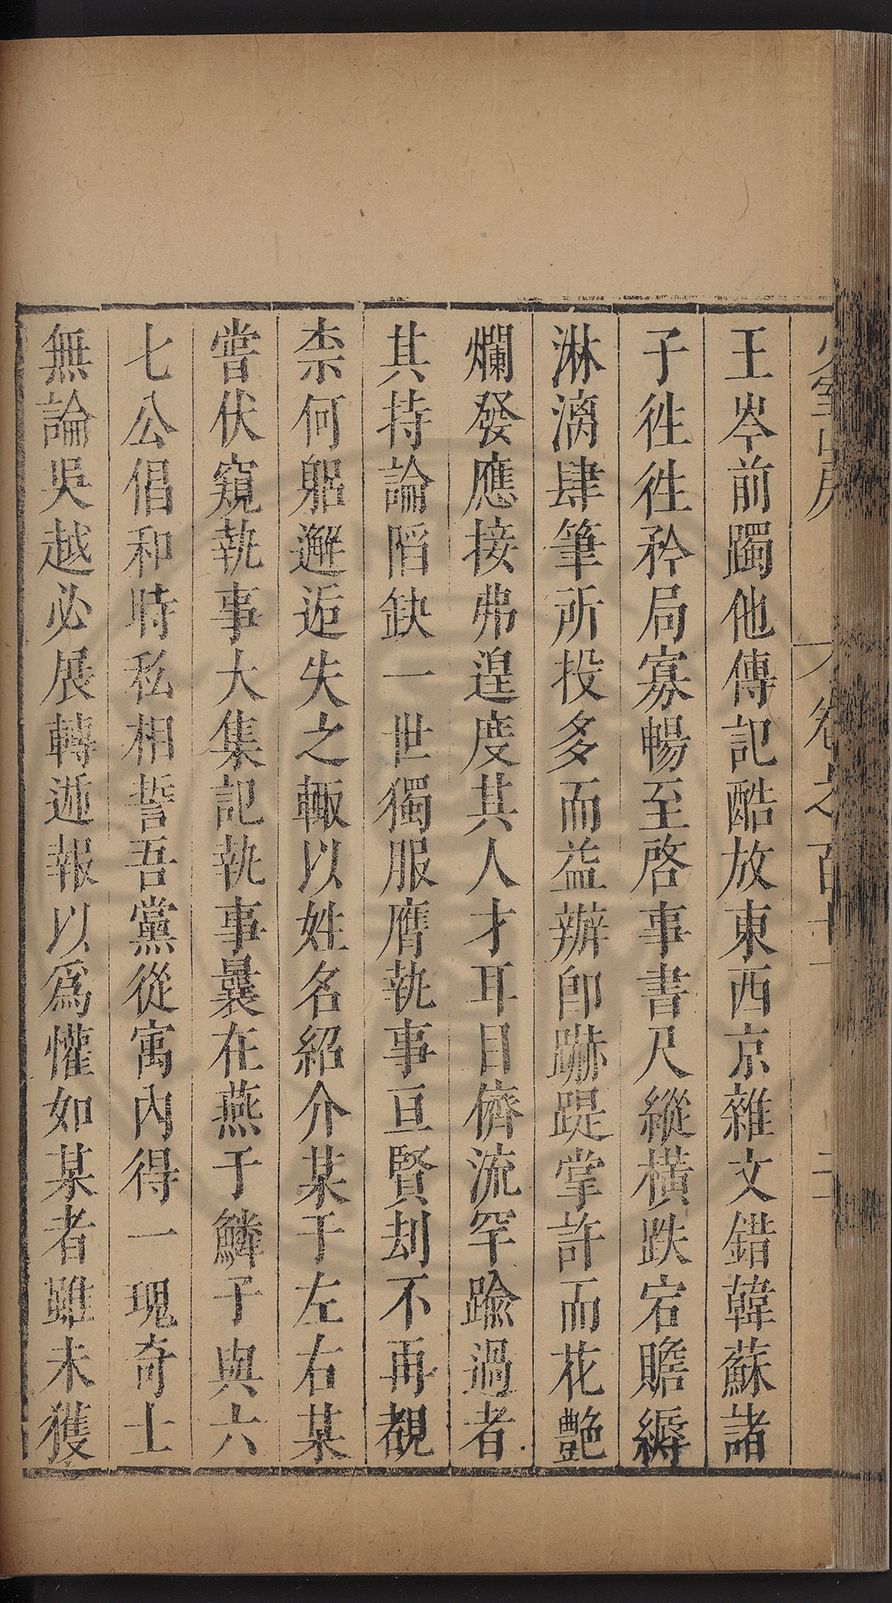 王岑前躅他傳記酷放東西京雜文錯韓蘇諸
子徃徃矜局寡暢至啓事書尺縱橫跌宕贍縟
淋漓肆筆所投多而益辦卽蹏踶掌許而花艶
爛發應接弗遑度其人才耳目儕流罕踰過者
其持論䧟缺一世獨服膺執事亘賢刼不再覩
柰何躳邂逅失之輙以姓名紹介某于左右某
嘗伏窺執事大集記執事曩在燕于鱗子與六
七公倡和時私相誓吾黨從寓內得一瑰奇士
無論吳越必展轉遞報以爲懽如某者雖未獲